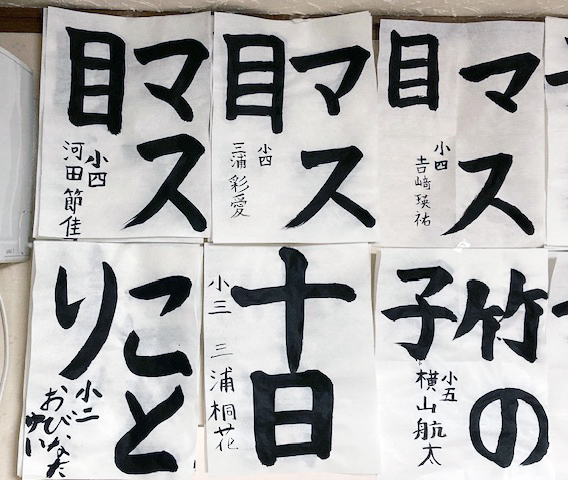 マス
目
小四
河田節佳
マス
目
小四
三浦彩愛
マス
目
小四
吉﨑瑛祐
こと
り
小二
おびなた
けい
十日
小三 三浦桐花
竹の
子
小五
横山航太